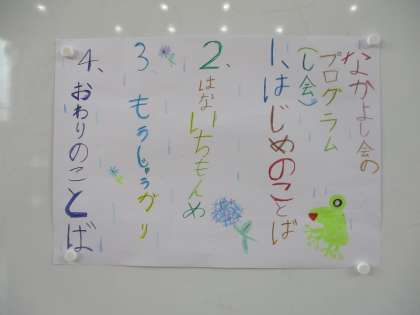 なかよし会の
プログラム
(し会)
1、はじめのことば
2、はないちもんめ
3、もうじゅうがり
4、おわりのことば